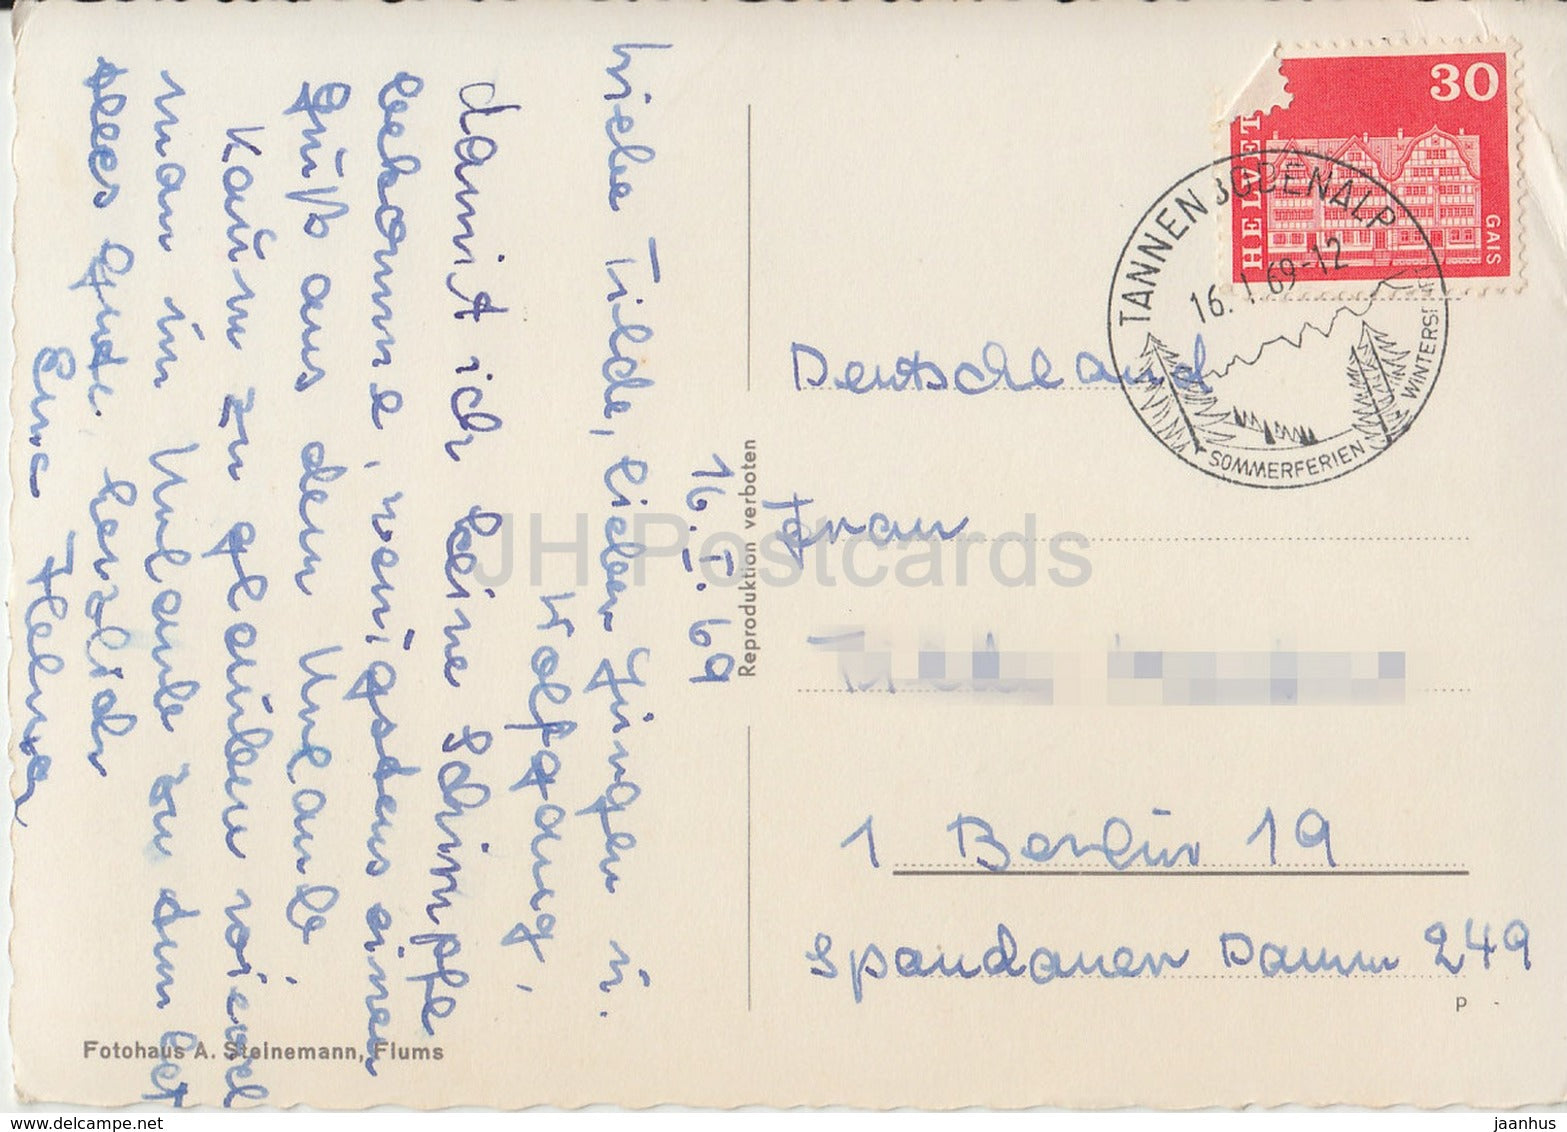 16. I. 69
Liebe Tilde, lieber Jürgen u.
Wolfgang,
damit ich keine Schimpfe
bekomme, wenigstens einen
Gruß aus dem Urlaub.
Kaum zu glauben wieviel
man im Urlaub zu tun hat
Alles Gute, herzlich
Eure Helma
Fotohaus A. Steinemann, Flums
Reproduktion verboten
HELVETIA
30
GAIS
TANNENBODENALP
16. 1. 69-12
SOMMERFERIEN
Deutschland
Frau
1 Berlin 19
Spandauer Damm 249
P -
JH Postcards
www.delcampe.net
jaanhus